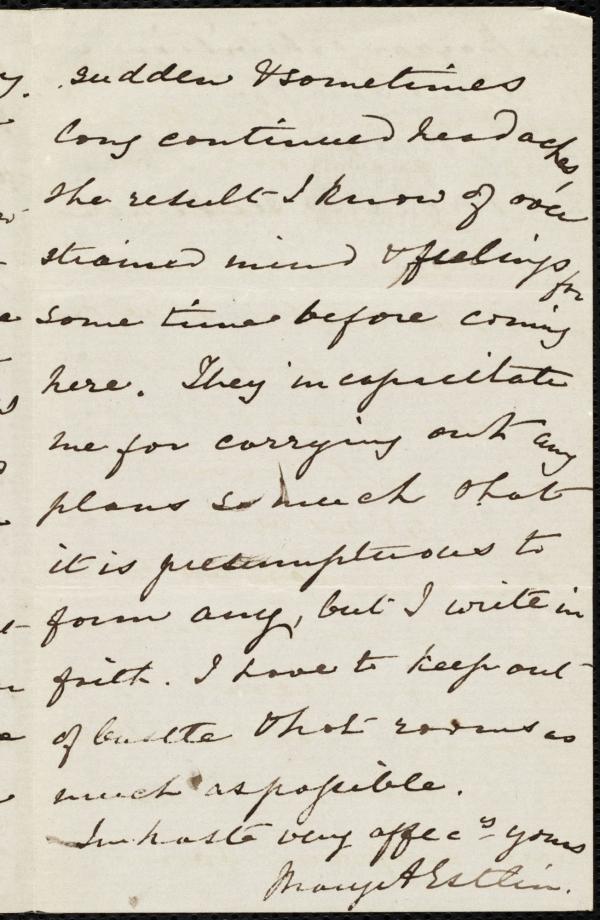 sudden & sometimes
long continued headaches,
the result I know of over
strained mind & feelings for
some time before coming
here. They incapacitate
me for carrying out any
plans so much that
it is presumptuous to
form any, but I write in
faith. I have to keep out
of bustle & hot rooms as
much as possible.
In haste very affecly yours
Mary A Estlin.